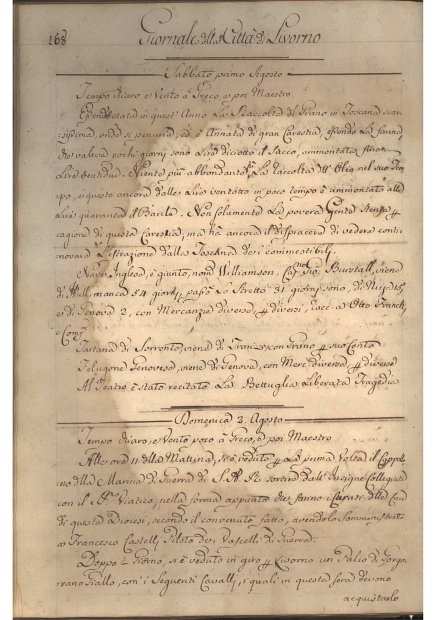 168
Giornale della Città di Livorno
Sabbato primo Agosto
Tempo chiaro, e Vento à Greco, e poi Maestro.
Essendo stata in quest' Anno La Raccolta del Grano in Toscana scar-
sissima, onde se penuria, ed è Annata di gran Carestia, essendo La farina
che valeva pochi giorni sono Lire diciotto il Sacco, aummontata sino a
Lire ventidue. Niente più abbondante La Raccolta dell' Olio nel suo Tem-
po, e questo ancora dalle Lire ventotto in poco tempo è ammontato alle
Lire quaranta il Barile. Non solamente La povera Gente stenta p
cagione di questa Carestia, ma hà ancora il dispiacere di vedere conti-
novare L'Estrazione dalla Toschana de i commestibili.
Nave Inglese, è giunto, nom Williamson, Cap.no Gio: Burstall, viene
di Hull, manca 54 giorni, passò Lo Stretto 31 giorni sono, di 15,
e di Genova 2, con Mercanzie diverse, p diversi, racc a Otto Franck,
e Comp
Tartana di Sorrento, viene di con Grano p suo Conto
Filugone Genovese, viene di Genova, con Merc: diverse, p diversi
Al Teatro è stato recitato La Bettuglia Liberata Tragedia
Domenica 2. Agosto
Tempo chiaro, e Vento poco à Greco, e poi Maestro
Alle ore 11 della Mattina, si è veduto p La prima volta il Cappell-
ano della Marina di Guerra di S. A. R. sortire dall' Insigne Collegiata
con il SS.mo Viatico, nella forma appunto che fanno i Curati delle Cure
di questa Diocesi, secondo il convenuto fatto, avendolo somministrato
a Francesco Castelli Piloto de Vascelli di Guerra.
Doppo il Giorno, si è veduto in giro p Livorno un Palio di Gorgo-
rano Giallo, con i seguenti Cavalli, i quali in questa sera devono
acquistarlo